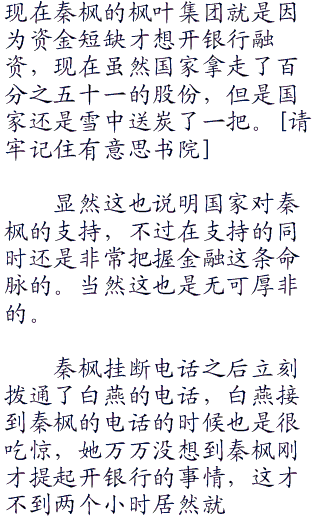 现在秦枫的枫叶集团就是因
为资金短缺才想开银行融
资，现在虽然国家拿走了百
分之五十一的股份，但是国
家还是雪中送炭了一把。[请
牢记住有意思书院]
显然这也说明国家对秦
枫的支持，不过在支持的同
时还是非常把握金融这条命
脉的。当然这也是无可厚非
的。
秦枫挂断电话之后立刻
拨通了白燕的电话，白燕接
到秦枫的电话的时候也是很
吃惊，她万万没想到秦枫刚
才提起开银行的事情，这才
不到两个小时居然就